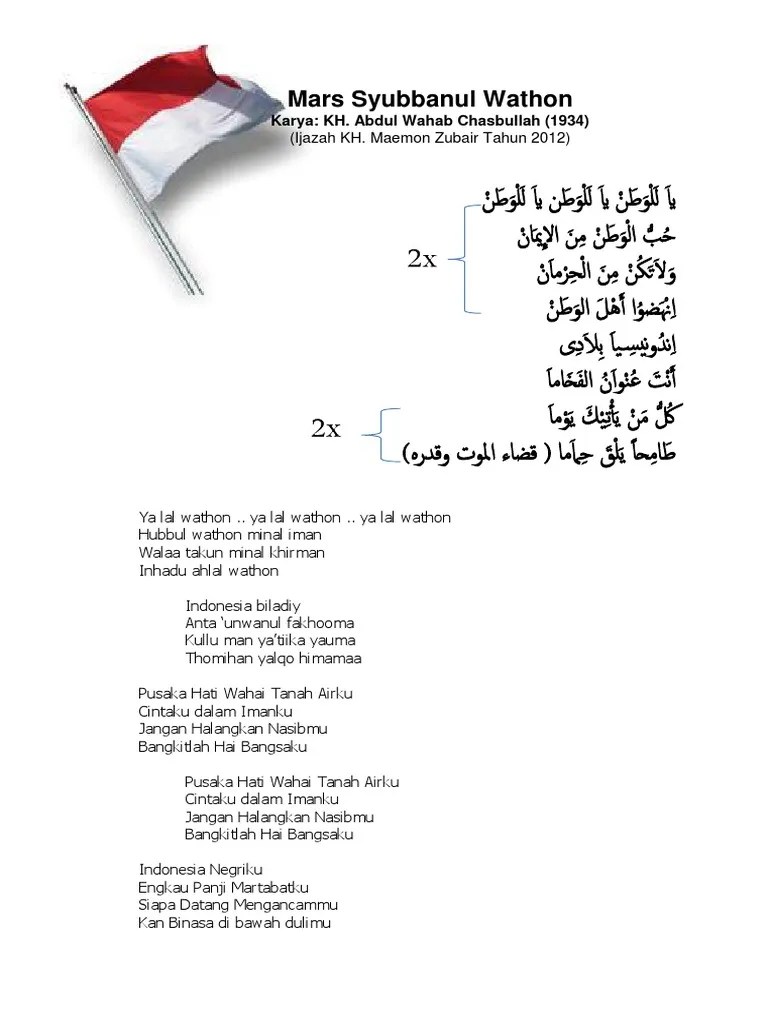 Mars Syubbanul Wathon
Karya: KH. Abdul Wahab Chasbullah (1934)
(Ijazah KH. Maemon Zubair Tahun 2012)
ياَ لَلْوَطَنْ ياَ لَلْوَطَن ياَ لَلْوَطَنْ
حُبُّ الْوَطَنْ مِنَ الإِيمَانْ
وَلاَتَكُنْ مِنَ الْحِرْماَنْ
اِنْهَضوُا أَهْلَ الوَطَنْ
2x
اِندُونيِسِياَ بِلاَدِى
أَنْتَ عُنْواَنُ الفَخَاماَ
كُلُّ مَنْ يَأْتِيْكَ يَوْماَ
طَامِحاً يَلْقَ حِماَما ( قضاء الموت وقدره)
2x
Ya lal wathon .. ya lal wathon .. ya lal wathon
Hubbul wathon minal iman
Walaa takun minal khirman
Inhadu ahlal wathon
Indonesia biladiy
Anta ‘unwanul fakhooma
Kullu man ya’tiika yauma
Thomihan yalqo himamaa
Pusaka Hati Wahai Tanah Airku
Cintaku dalam Imanku
Jangan Halangkan Nasibmu
Bangkitlah Hai Bangsaku
Pusaka Hati Wahai Tanah Airku
Cintaku dalam Imanku
Jangan Halangkan Nasibmu
Bangkitlah Hai Bangsaku
Indonesia Negriku
Engkau Panji Martabatku
Siapa Datang Mengancammu
Kan Binasa di bawah dulimu